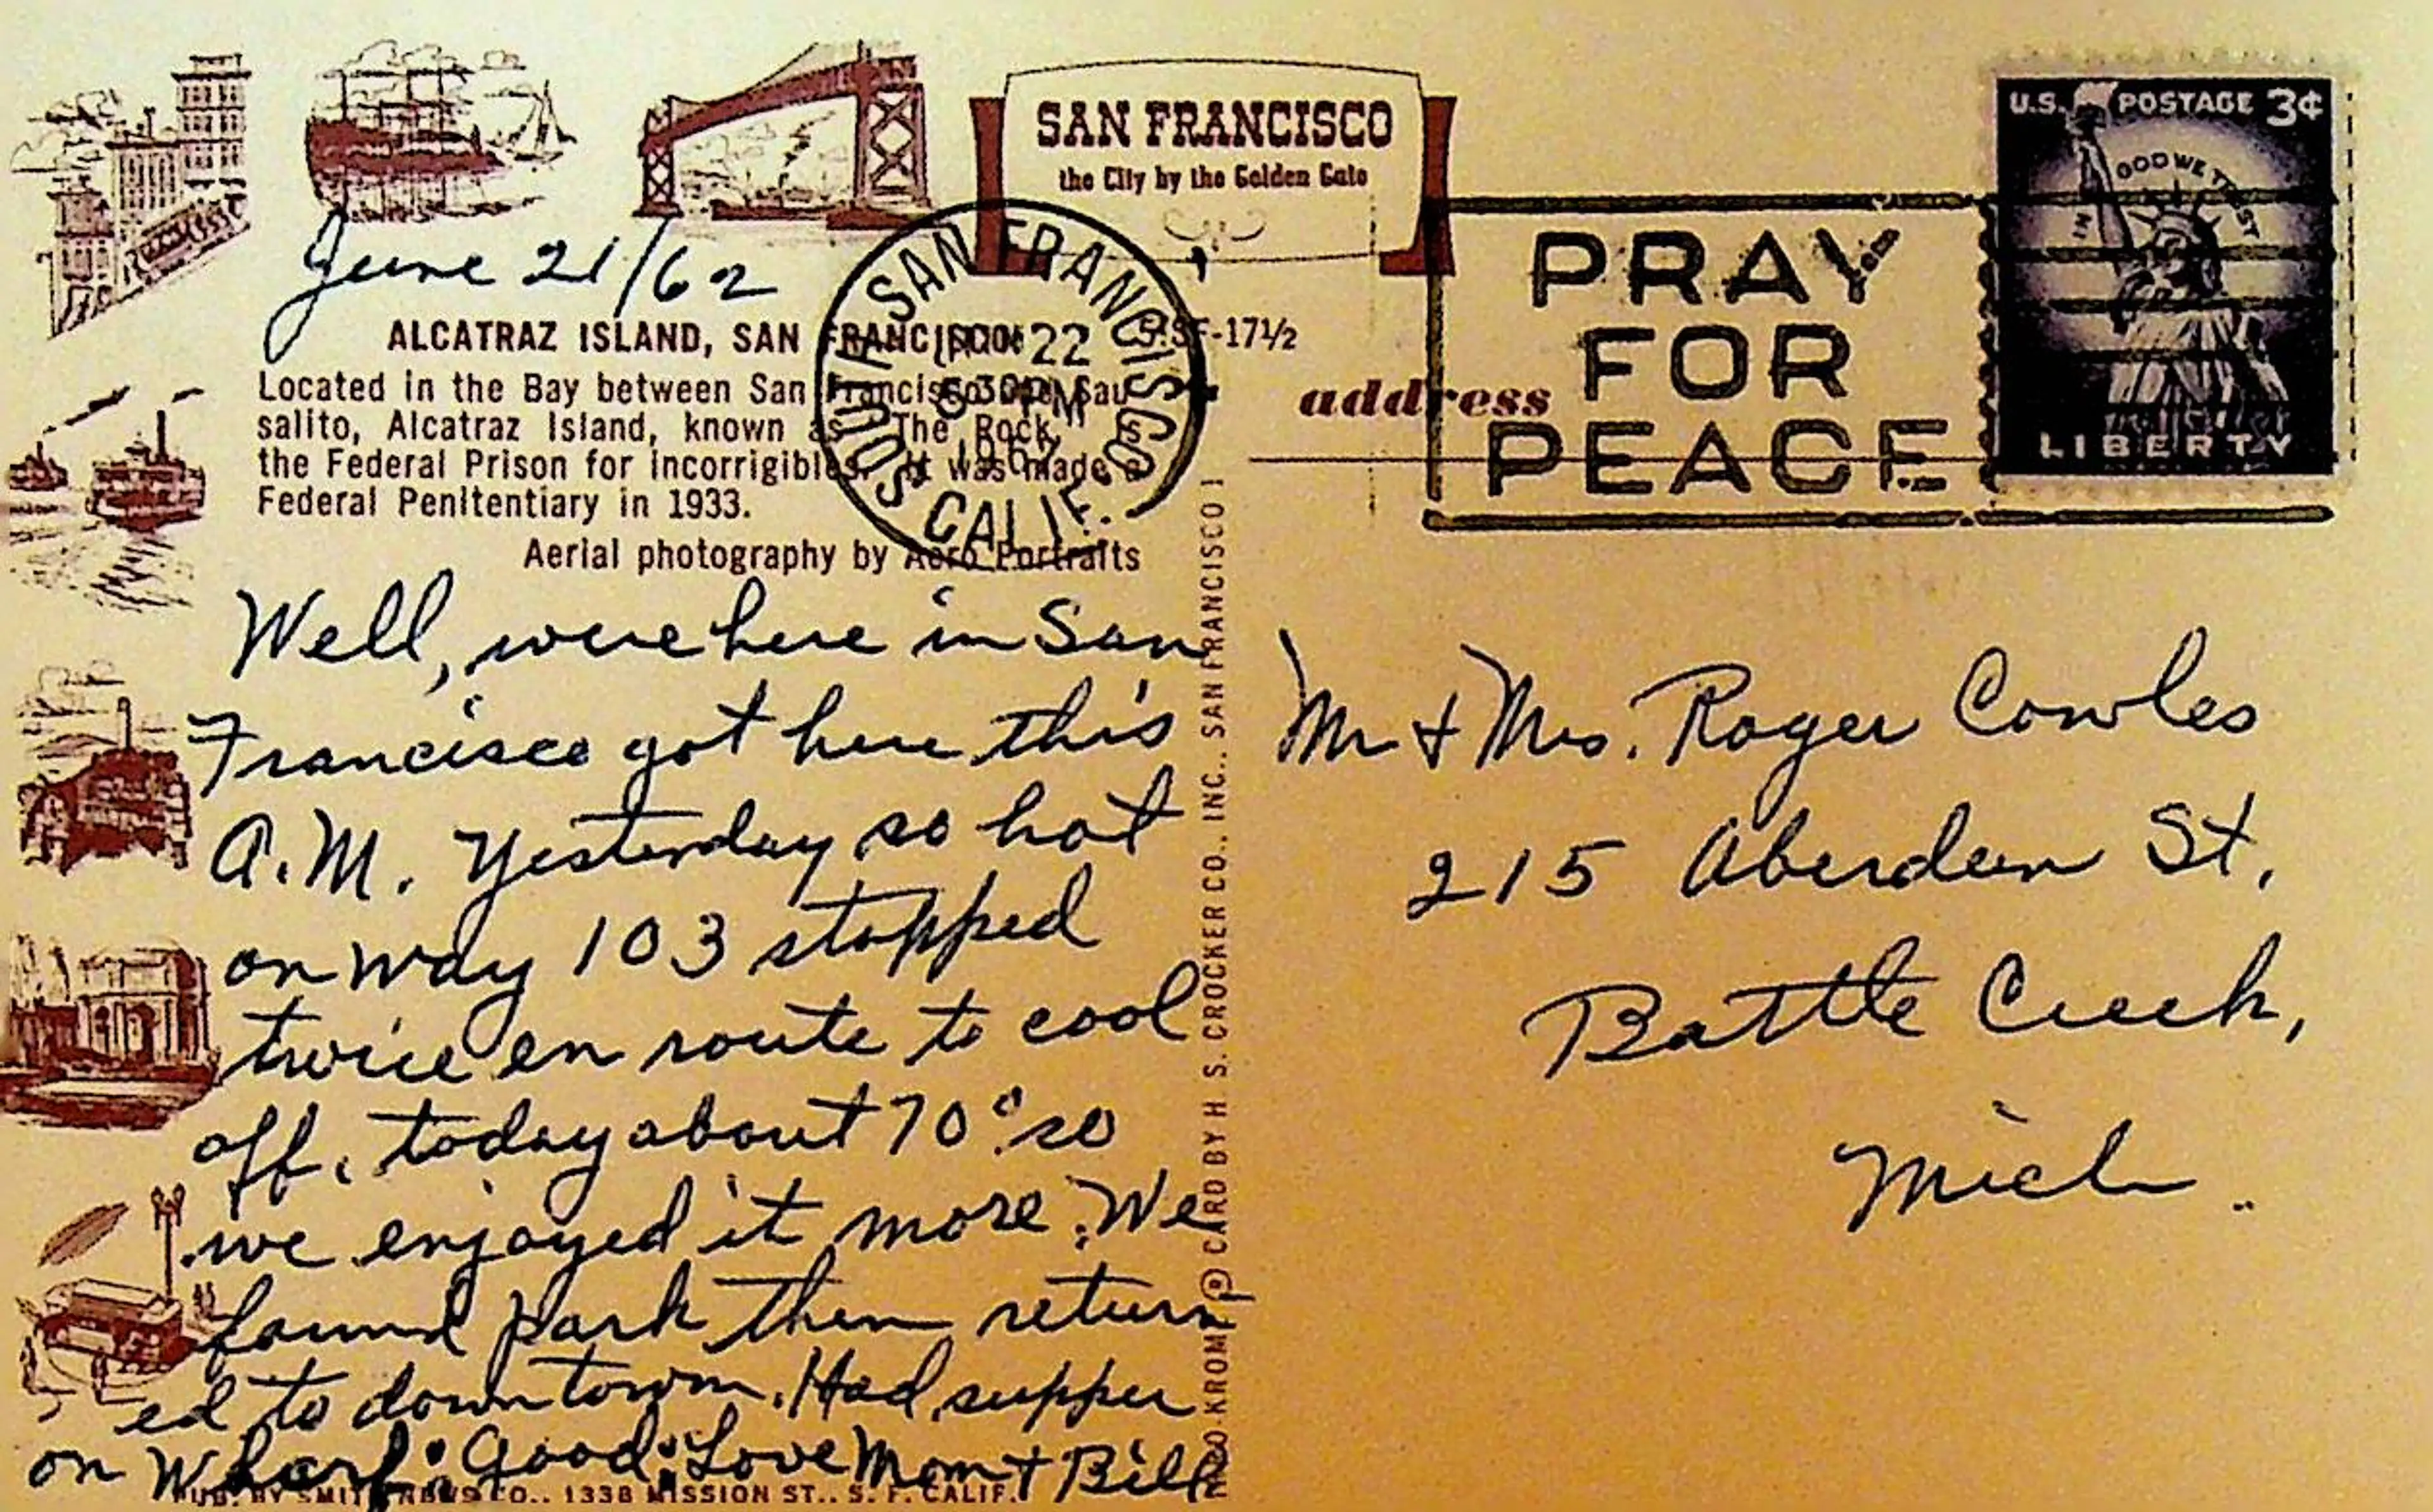 SAN FRANCISCO
the City by the Golden Gate
U.S. POSTAGE 3¢
IN GOD WE TRUST
LIBERTY
June 21/62
SAN FRANCISCO
22
PM
CALIF.
PRAY
FOR
PEACE
ALCATRAZ ISLAND, SAN FRANCISCO SF-17½
Located in the Bay between San Francisco and Sau
salito, Alcatraz Island, known as "The Rock," is
the Federal Prison for incorrigibles. It was made a
Federal Penitentiary in 1933.
Aerial photography by Aero Portraits
address
Well, were here in San
Francisco got here this
A.M. Yesterday so hot
on way 103 stopped
twice en route to cool
off. today about 70° so
we enjoyed it more. We
found park then return
ed to downtown. Had supper
on Wharf. Good. Love Mom + Bill
Mr + Mrs. Roger Cowles
215 Aberdeen St.
Battle Creek,
Mich.
© CARD BY H. S. CROCKER CO., INC., SAN FRANCISCO 1
CO., 1338 MISSION ST., S. F. CALIF.